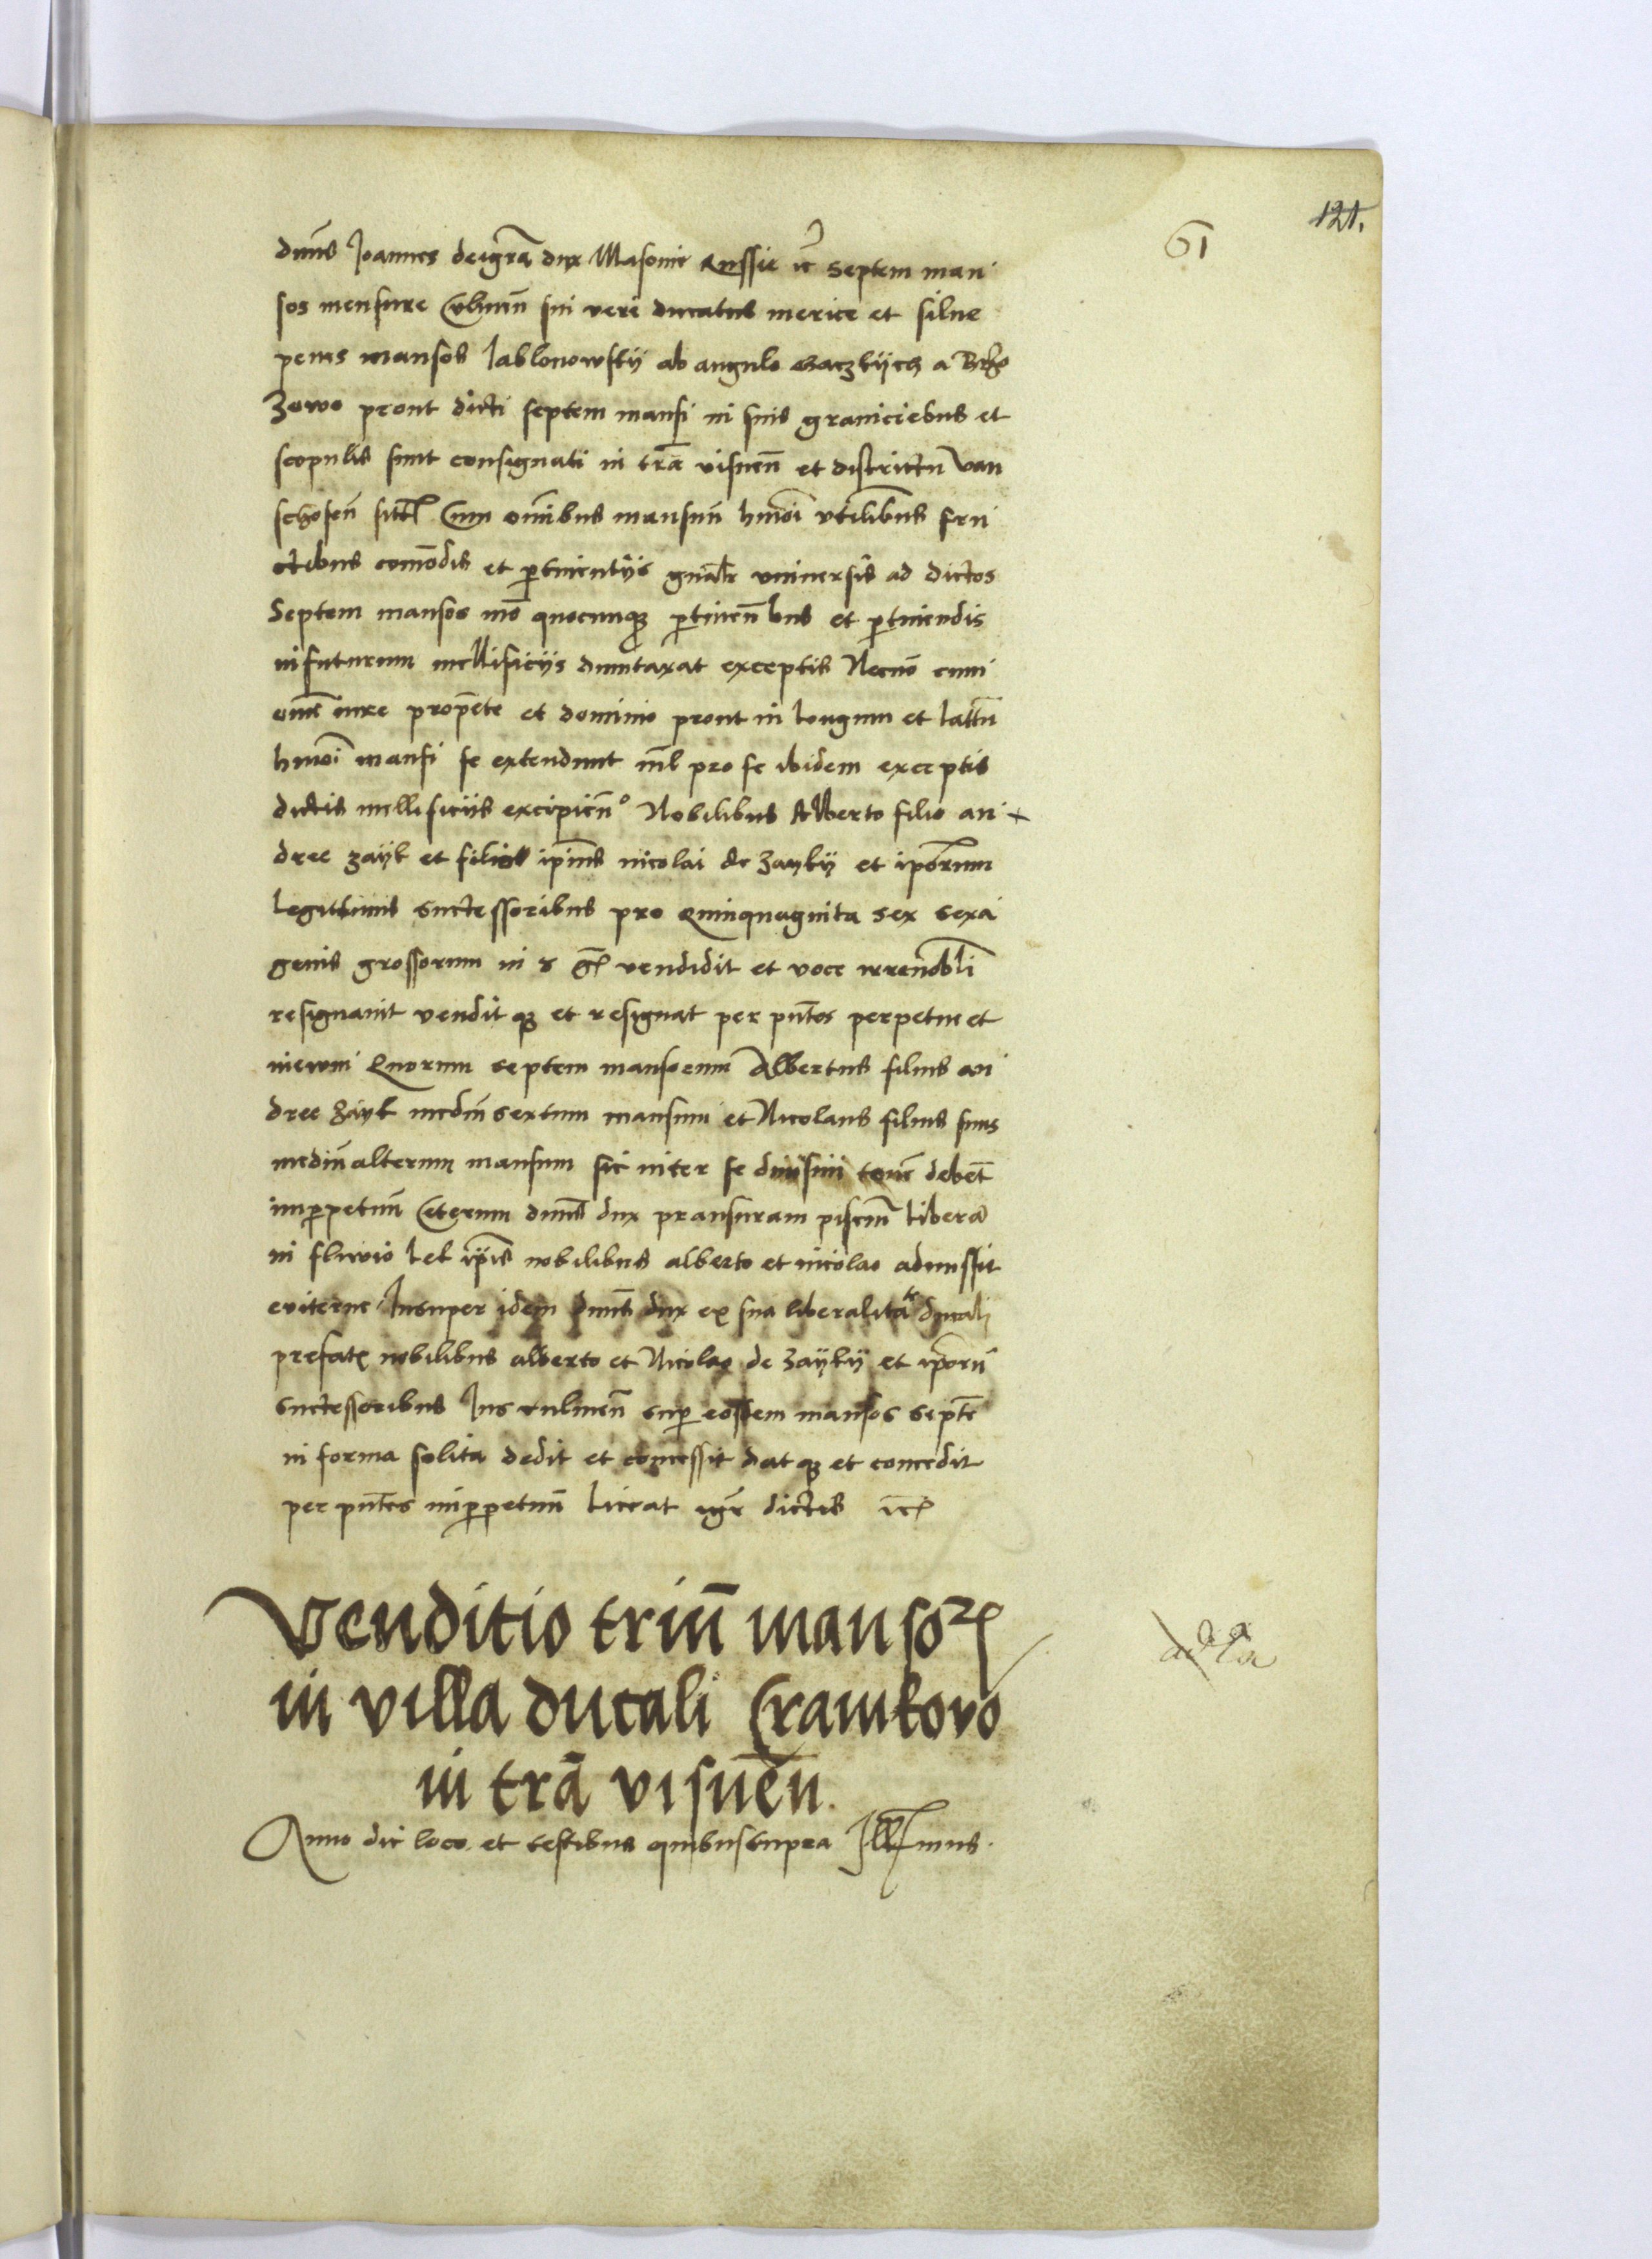 121.
61
dnūs Joannes deigrā dux Masouie Russie ec̄ septem man
sos mensure Culmeñ sui veri ducatus merice et silue
penes mansos Jablonowskij ab angulo
zowo prout dicti septem mansi in suis graniciebus et
scopulis sunt consignati in trā visneñ et districtu van
schoseñ Cum om̄ibus mansuū hmōi vtilibus fru
ctibus com̄odis et ꝑtinentijs gnālr̄ vniuersis ad dictos
Septem mansos mō quocunqꝫ ꝑtineñbus et ꝑtinendis
infuturum mellificijs dumtaxat exceptis Necnō cum
om̄i iure propēte et dominio prout in longum et lattū
hmōi mansi se extendunt nīl pro se ibidem exceptis
dictis mellificijs excipieñº Nobilibus Alberto filio an +
dree zayk et filio ipīus nicolai de zayky et ipōrum
legittimis successoribus pro Quinquaginta sex sexa
genis grossorum in vendidit et voce irreuobli
resignauit vendit qꝫ et resignat per pn̄tes perpetue et
in ewm Quorum septem mansorum Albertus filius an
dree zayk mediū sextum mansum et Nicolaus filius suus
mediū alterum mansum sic inter se diuisim tenē debēt
inꝑpetuū Ceterum dnūs dux pransuram pisciū liberā
in fluuio Lek ip̄is nobilibus alberto et nicolao admissit
euiterne Insuper idem dnūs dux ex sua liberalitate ducali
prefat nobilibus alberto et Nicolao de zayky et ipōrū
successoribus Jus culmeñ suꝑ eosdem mansos septē
in forma solita dedit et concessit dat qꝫ et concedit
per pn̄tes inꝑpetuū Liceat igr̄ dictis ec̄
Venditio triū mansoꝝ
in villa ducali Cramkovo
in trā visneñ.
Anno die loco et testibus quibus supra Jllmus.